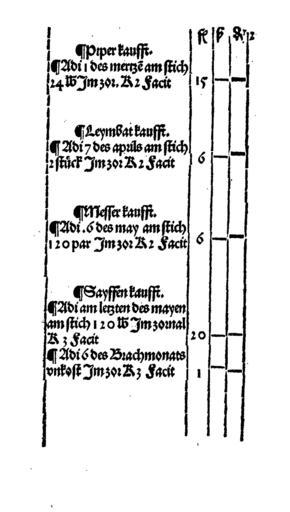 fl ß ₰ 12
¶Piper kaufft.
¶Adi 1 des mertzē am stich
24 lb Jm 301. K 2 Facit 15 — —
¶Leymbat kaufft.
¶Adi 7 des aprils am stich
2 stück Jm 301 K 2 Facit 6 — —
¶Messer kaufft.
¶Adi .6 des may am stich
120 par Jm 301 K 2 Facit 6 — —
¶Sayffen kaufft.
¶Adi am letzten des mayen
am stich 120 lb Jm 301nal
K 3 Facit 20 — —
¶Adi 6 des Brachmonats
vnkost Jm 301 K 3 Facit 1 — —